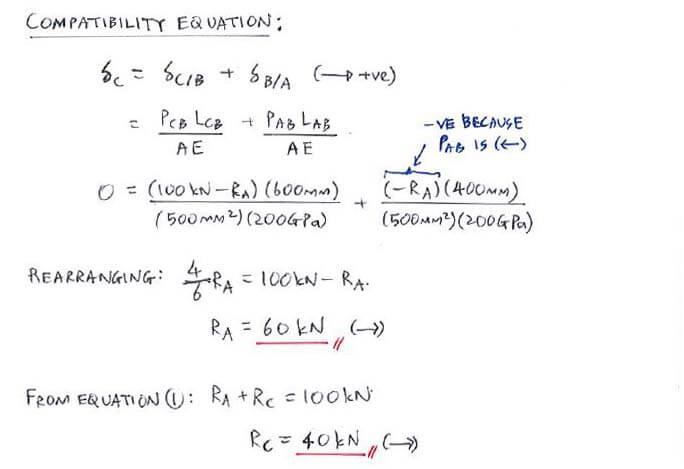 COMPATIBILITY EQUATION:
δC = δC/B + δB/A (→ +ve)
= PCB LCB / AE + PAB LAB / AE
-VE BECAUSE
PAB IS (←)
0 = (100kN-RA)(600mm) / (500mm²)(200GPa) + (-RA)(400mm) / (500mm²)(200GPa)
REARRANGING: 4/6 RA = 100kN - RA.
RA = 60kN (→)
FROM EQUATION ①: RA + RC = 100kN
RC = 40kN (→)